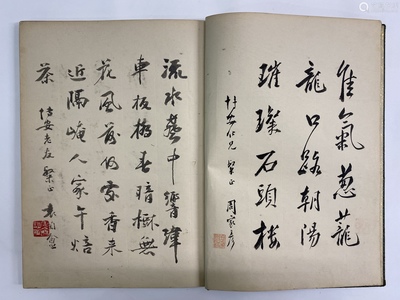 佳氣蔥蘢
龍口路朝陽
璀璨石頭樓
仁兄 粲正 周家彥
流水聲中響緯
車板橋春暗樹無
花風前何處香來
近隔崦人家午焙
茶
安老友粲正